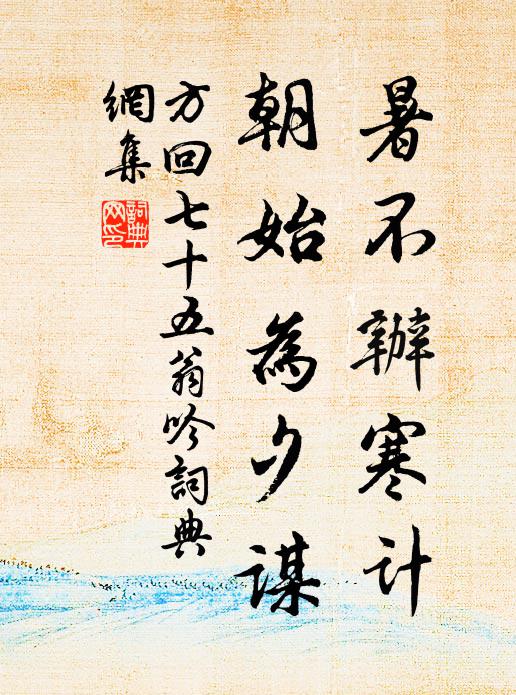 暑不辦寒计
朝始為夕謀
方回七十五翁吟詞典
網集
詞典
网印